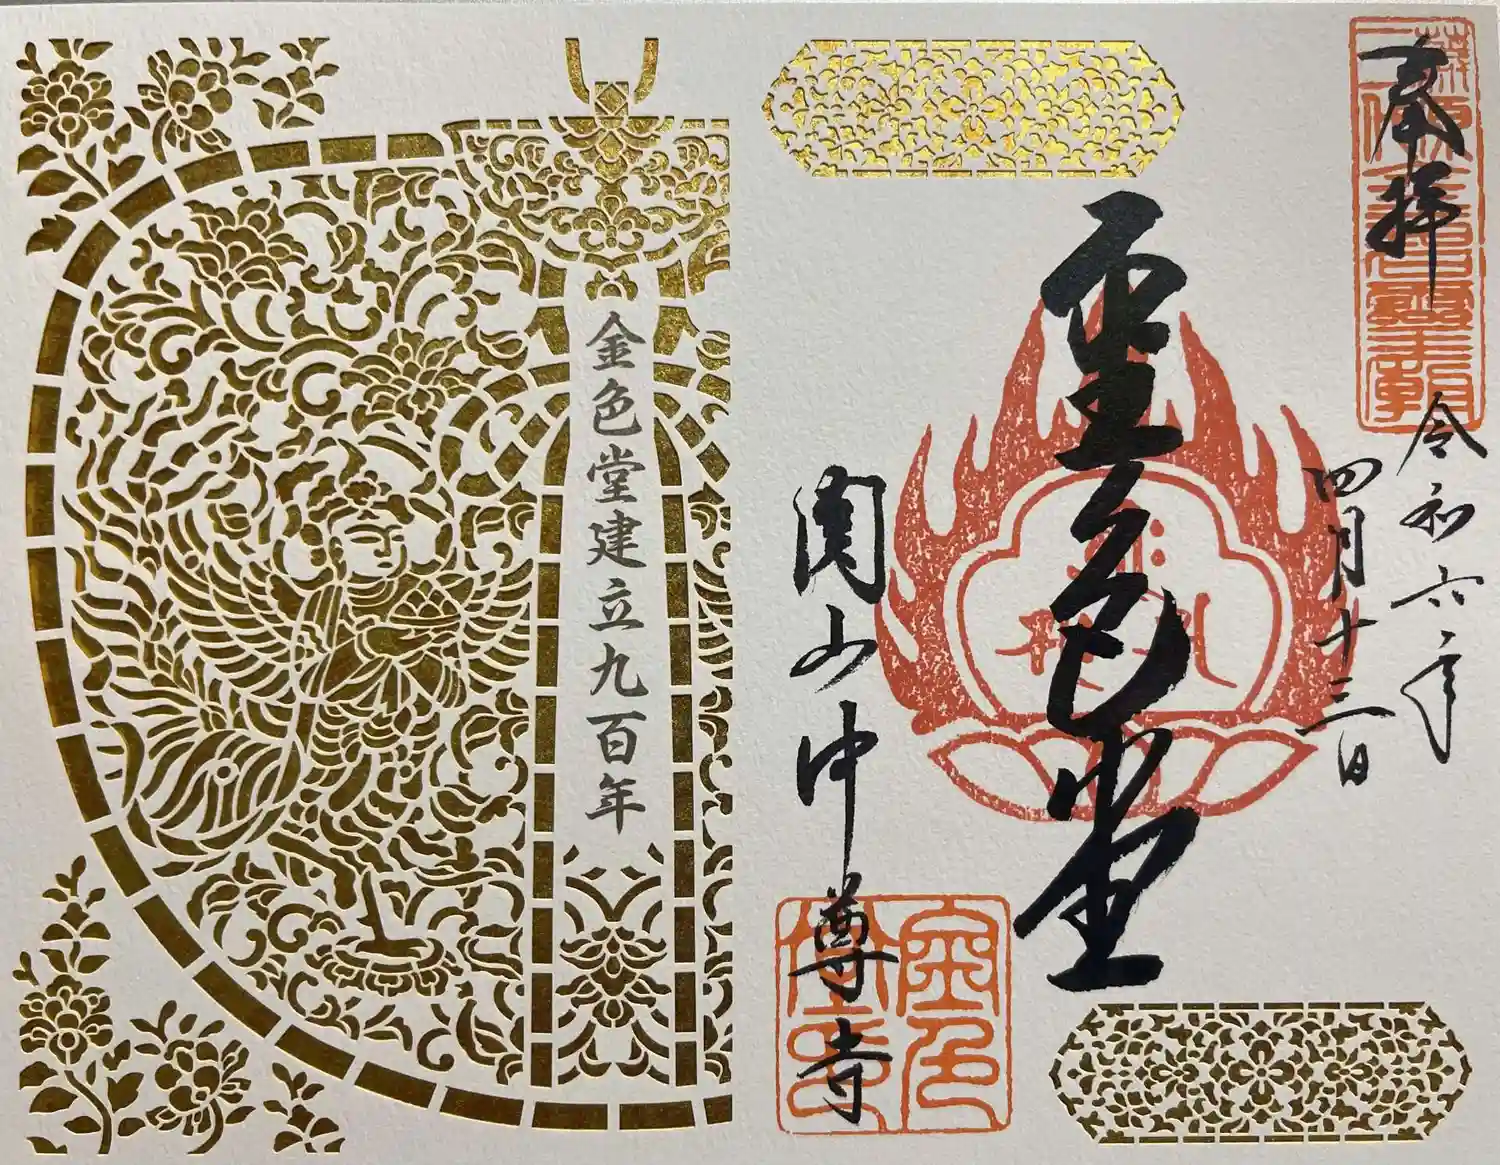 奉拝
令和六年
四月十三日
金色堂
関山中尊寺
金色
堂印
金色堂建立九百年